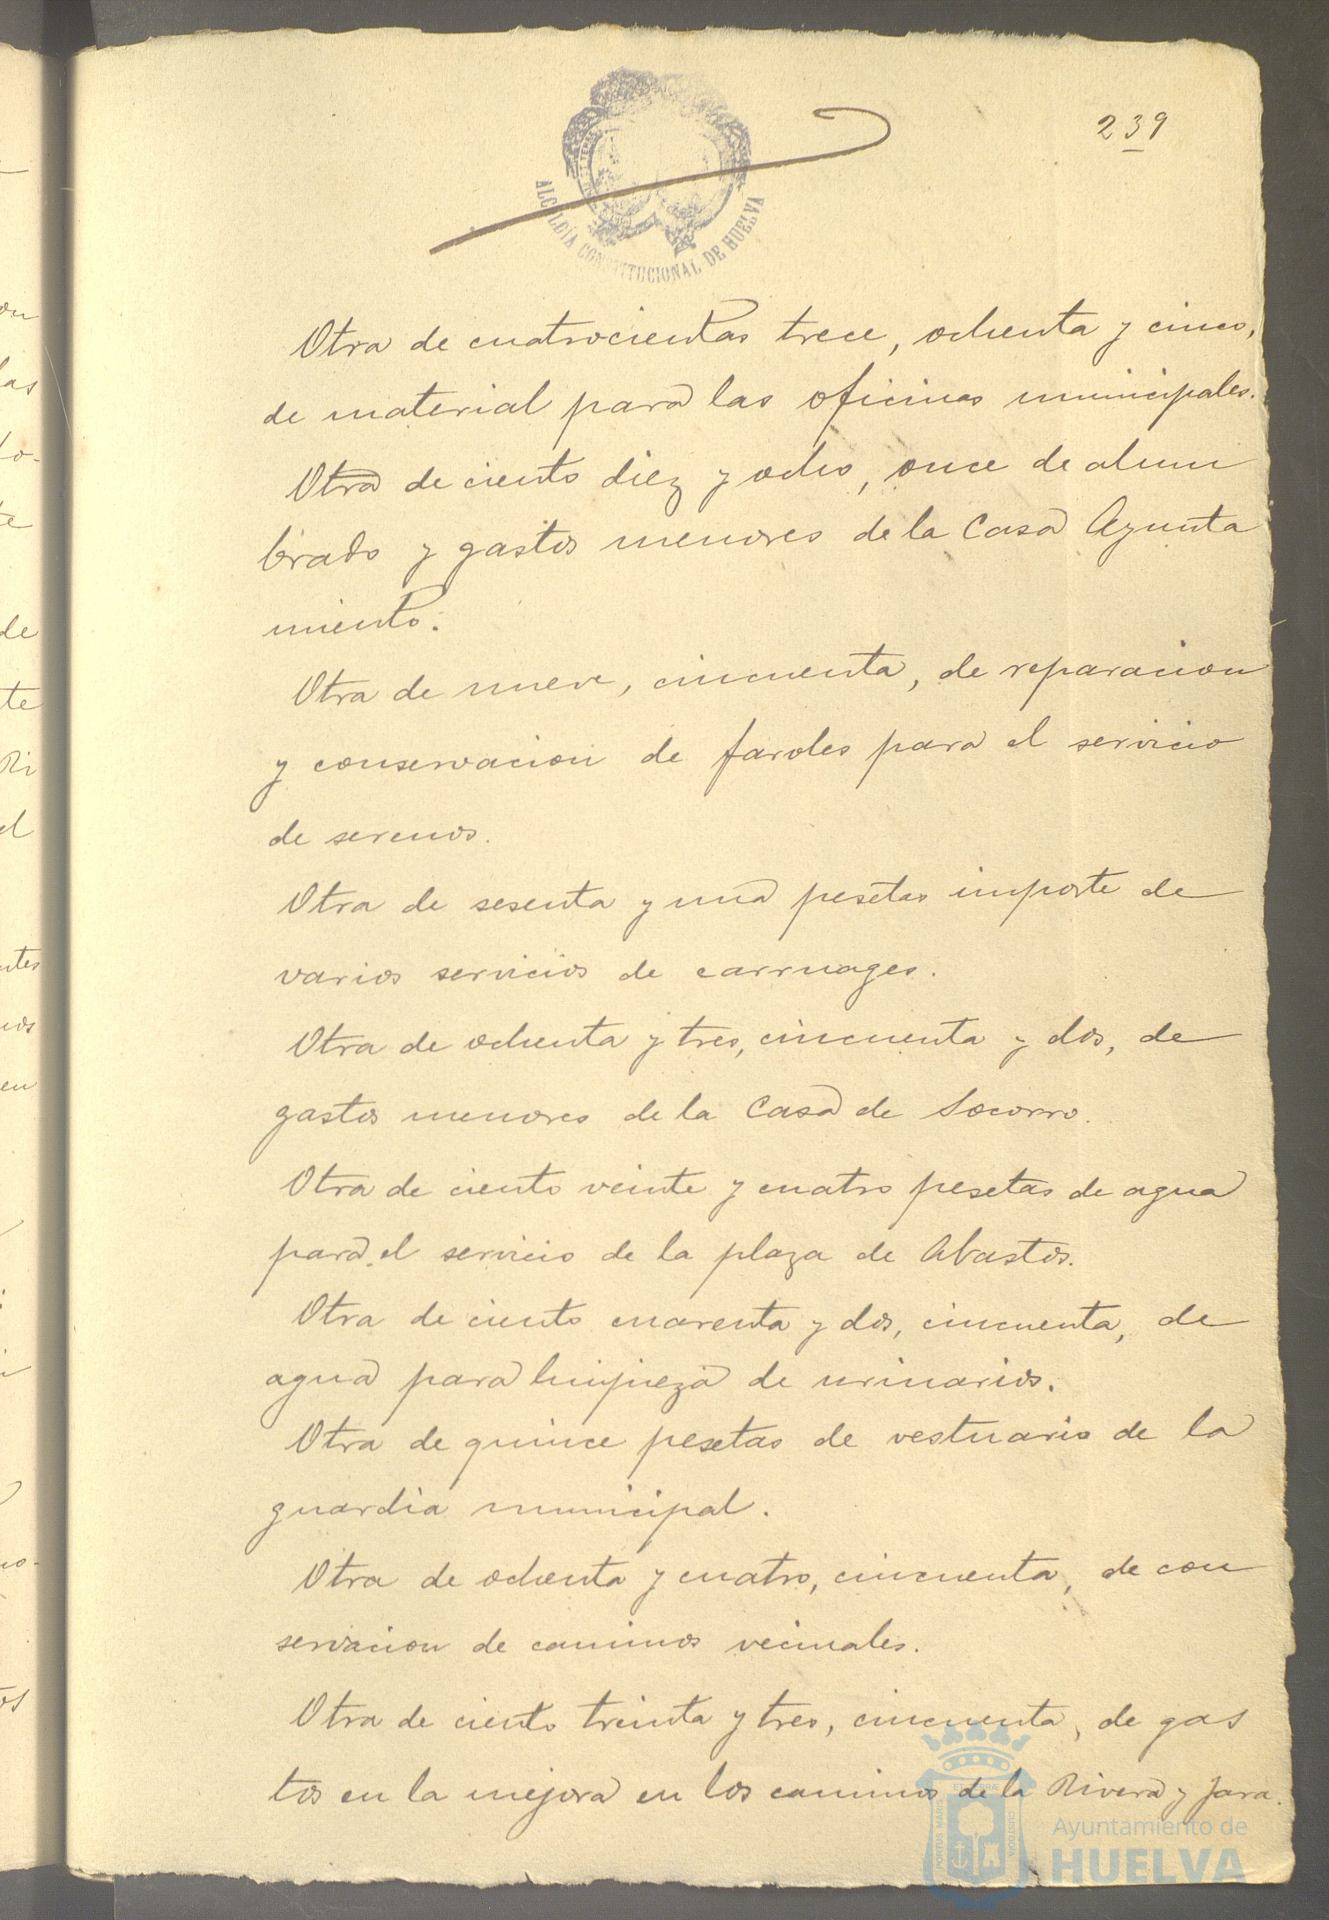 239
ALCALDÍA CONSTITUCIONAL DE HUELVA
Otra de cuatrocientas trece, ochenta y cinco,
de material para las oficinas municipales.
Otra de ciento diez y ocho, once de alum
brado y gastos menores de la Casa Ayunta
miento.
Otra de nueve, cincuenta, de reparacion
y conservacion de faroles para el servicio
de serenos.
Otra de sesenta y una pesetas importe de
varios servicios de carruages.
Otra de ochenta y tres, cincuenta y dos, de
gastos menores de la Casa de Socorro.
Otra de ciento veinte y cuatro pesetas de agua
para el servicio de la plaza de Abastos.
Otra de ciento cuarenta y dos, cincuenta, de
agua para limpieza de urinarios.
Otra de quince pesetas de vestuario de la
guardia municipal.
Otra de ochenta y cuatro, cincuenta, de con
servacion de caminos vecinales.
Otra de ciento treinta y tres, cincuenta, de gas
tos en la mejora en los caminos de la Rivera y Jara.
Ayuntamiento de
HUELVA